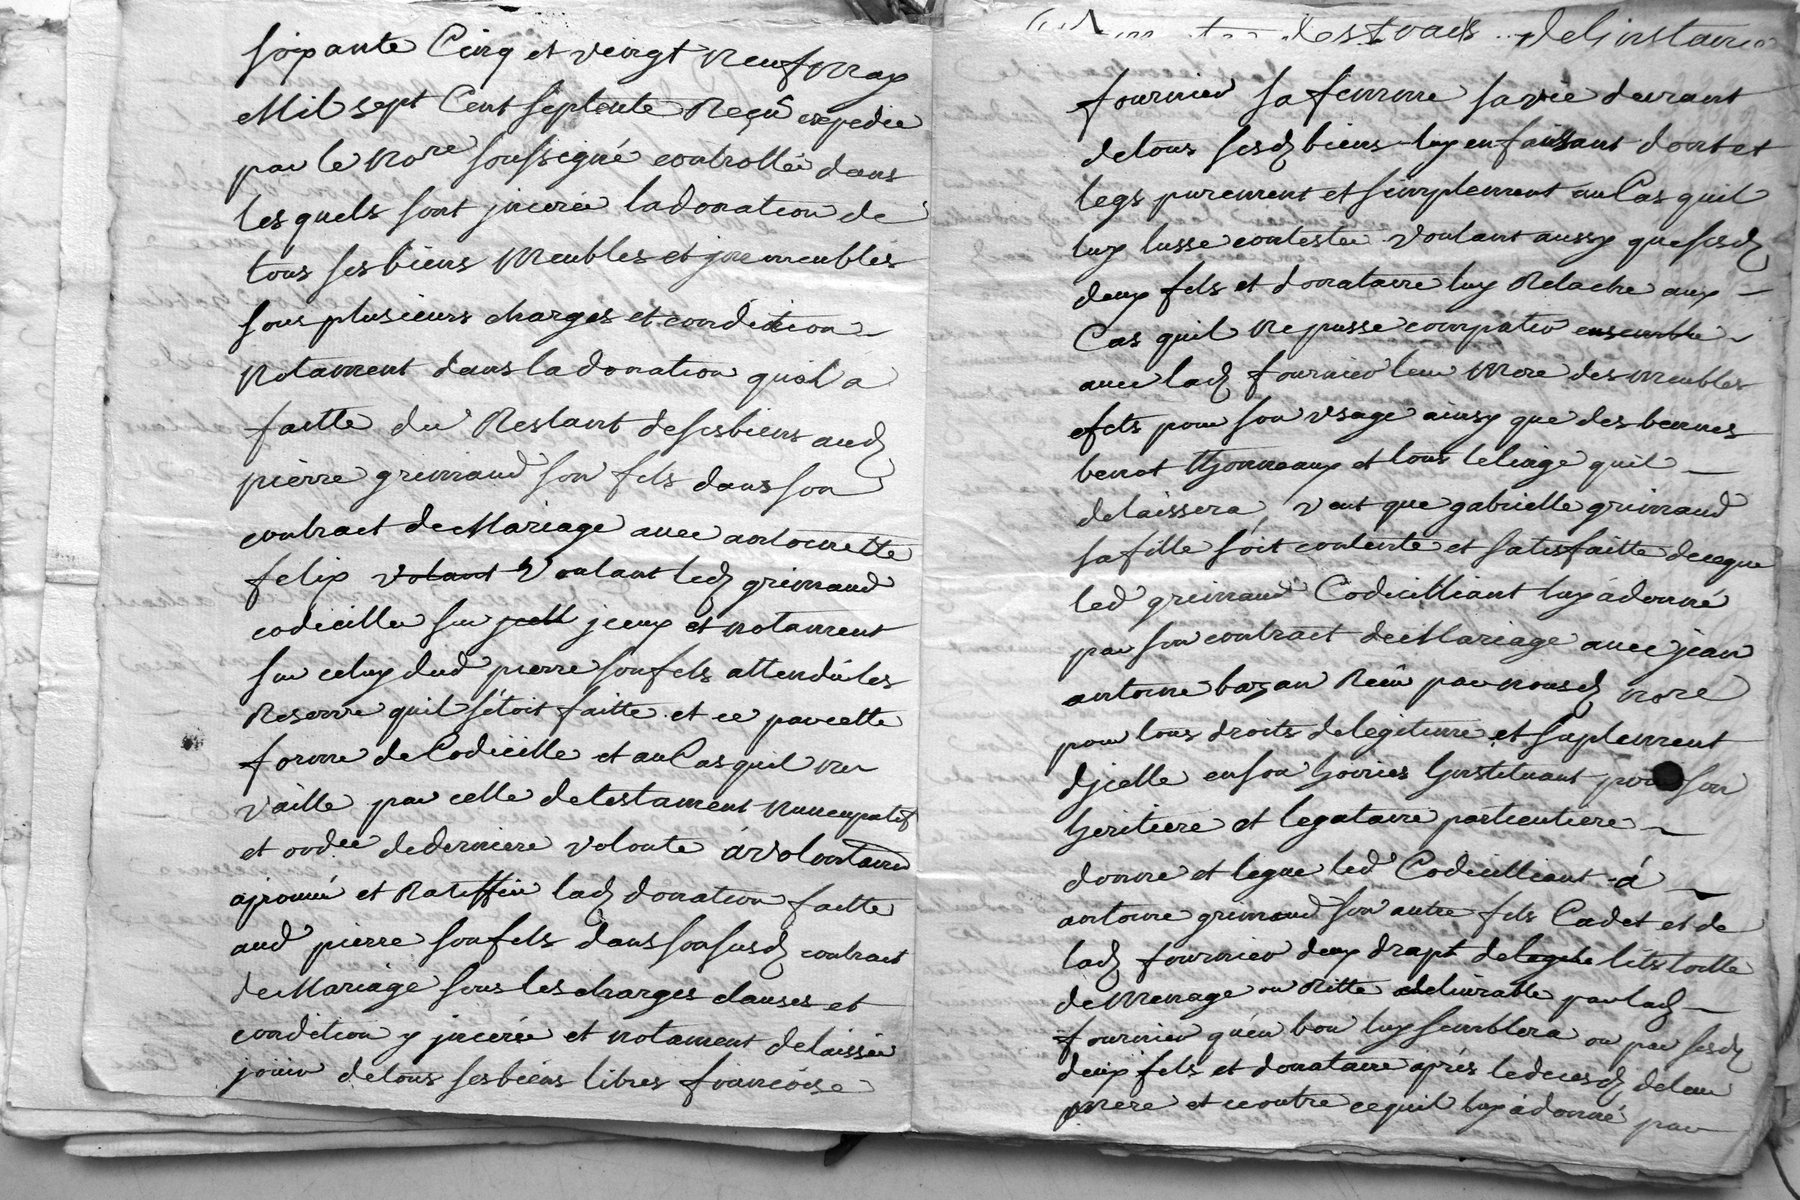 soixante Cinq et veingt neuf may
Mil sept Cent septente Reçû expedie
par le no.re soussigné controllée dans
lesquels sont jnceréé ladonation de
tous ses biens Meubles et jmmeubles
sous plusieurs charges et condition
Notament dans la donation quil a
faitte du Restant de ses biens aud
pierre grimaud son fils dans son
contract de Mariage avec antoinette
felix volant Voulant led grimaud
codiciller sur jcell jceux et notament
sur celuy dud pierre son fils attendu les
Reserve quil s'étoit faitte et ce par cette
forme de Codicille et au Cas quil ne
vaille par celle de testament nuncupatif
et ordre de derniere volonté
aprouvé et Ratiffie lad donation faitte
aud pierre son fils dans son susd contract
de Mariage sous les charges clauses et
condition y jnceréé et notament de laisser
jouir de tous ses biens libres francoise
des trads delinstance
fournier sa femme sa vie durant
de tous sesd biens luy en faissant dont et
legs purement et simplement au Cas quil
luy fusse contestée voulant aussy que sesd
deux fils et donataire luy Relache aux
Cas quil ne pusse compatir ensemble
avec lad fournier leur Mere des meubles
efets pour son usage ainsy que des bennes
benot thonneaux et tous le linge quil
delaissera, veut que gabrielle grimaud
sa fille soit contente et satisfaitte de ce que
led grimaud Codicilliant luy à donné
par son contract de Mariage avec jean
antoine bazan Reçû par nousd nore
pour tous droits de legitime et suplement
djcelle en son hoiries linstituant pour son
heritiere et legataire particuliere
donne et legue led Codicilliant à
antoine grimaud son autre fils Cadet et de
lad fournier deux drapt de lits toille
de Menage ou Ritte delivrable par lad
fournier quen bon luy semblera ou par sesd
deux fils et donataire après le deces de leur
mere et ce outre ce quil luy à donné par